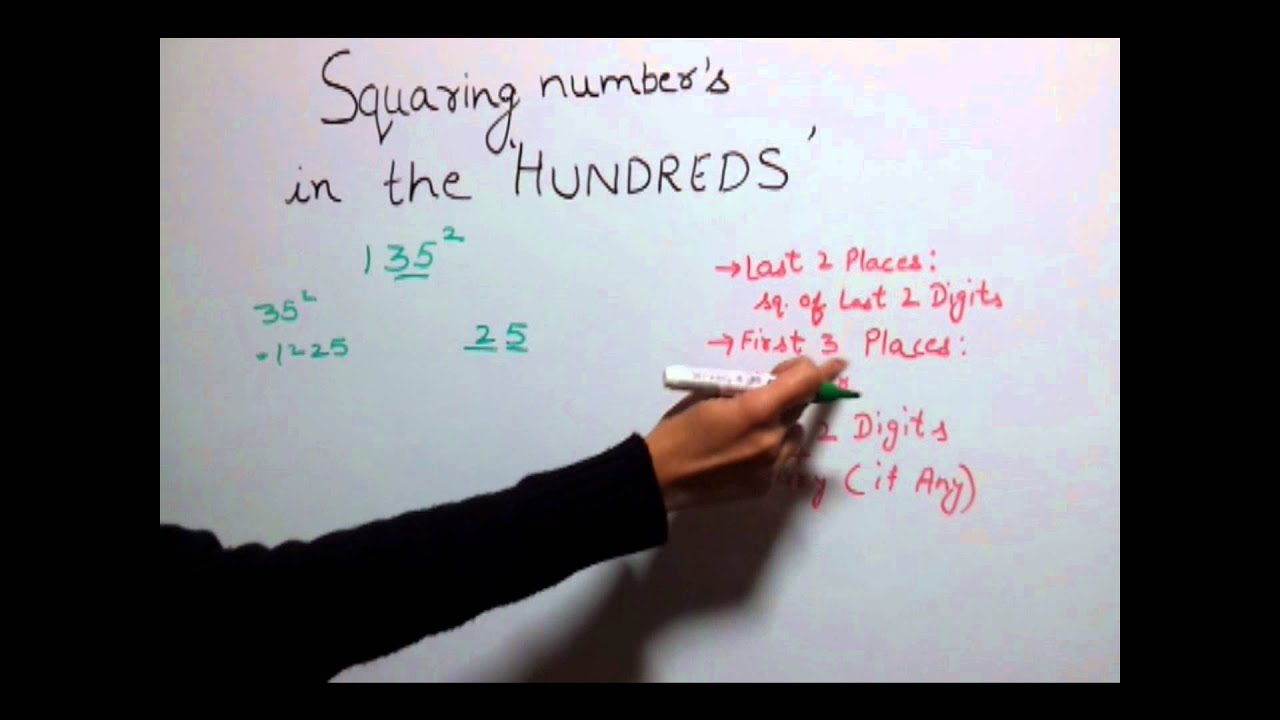 Squaring number's
in the 'HUNDREDS'
135²
35²
1225
25
→ Last 2 Places:
sq. of Last 2 Digits
→ First 3 Places:
2 Digits
(if Any)